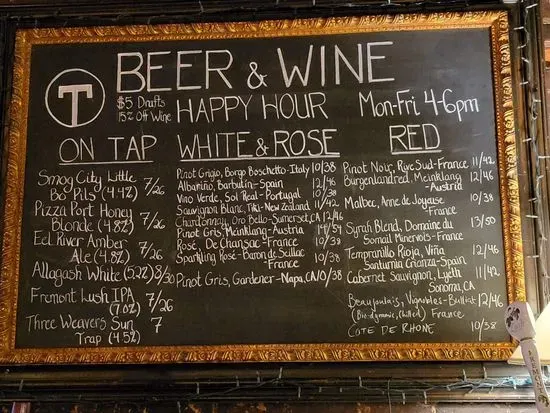 T
BEER & WINE
$5 Drafts
15% Off Wine
HAPPY HOUR
Mon-Fri 4-6pm
ON TAP
Smog City Little
Bo Pils (4.4%) 7/26
Pizza Port Honey
Blonde (4.8%) 7/26
Eel River Amber
Ale (4.8%) 7/26
Allagash White (5.2%) 8/30
Fremont Lush IPA
(7.0%) 7/26
Three Weavers Sun
Trap (4.5%) 7
WHITE & ROSE
Pinot Grigio, Borgo Boschetto-Italy 10/38
Albariño, Barbutin-Spain 12/46
Vino Verde, Sol Real-Portugal 10/38
Sauvignon Blanc, Tiki-New Zealand 11/42
Chardonnay, Oro Bello-Somerset, CA 12/46
Pinot Gris, Meinklang-Austria 14/54
Rosé, De Chansac-France 10/38
Sparkling Rosé-Baron de Seillac
-France 10/38
Pinot Gris, Gardener-Napa, CA 10/38
RED
Pinot Noir, Rive Sud-France 11/42
Burgenlandred, Meinklang
-Austria 12/46
Malbec, Anne de Joyeuse
-France 10/38
Syrah Blend, Domaine du
Somail Minervois-France 13/50
Tempranillo Rioja, Viña
Santurnia Crianza-Spain 12/46
Cabernet Sauvignon, Lyeth
Sonoma, CA 11/42
Beaujolais, Vignobles-Bulliat 12/46
(Bio-dynamic, Chilled) France
COTE DE RHONE 10/38